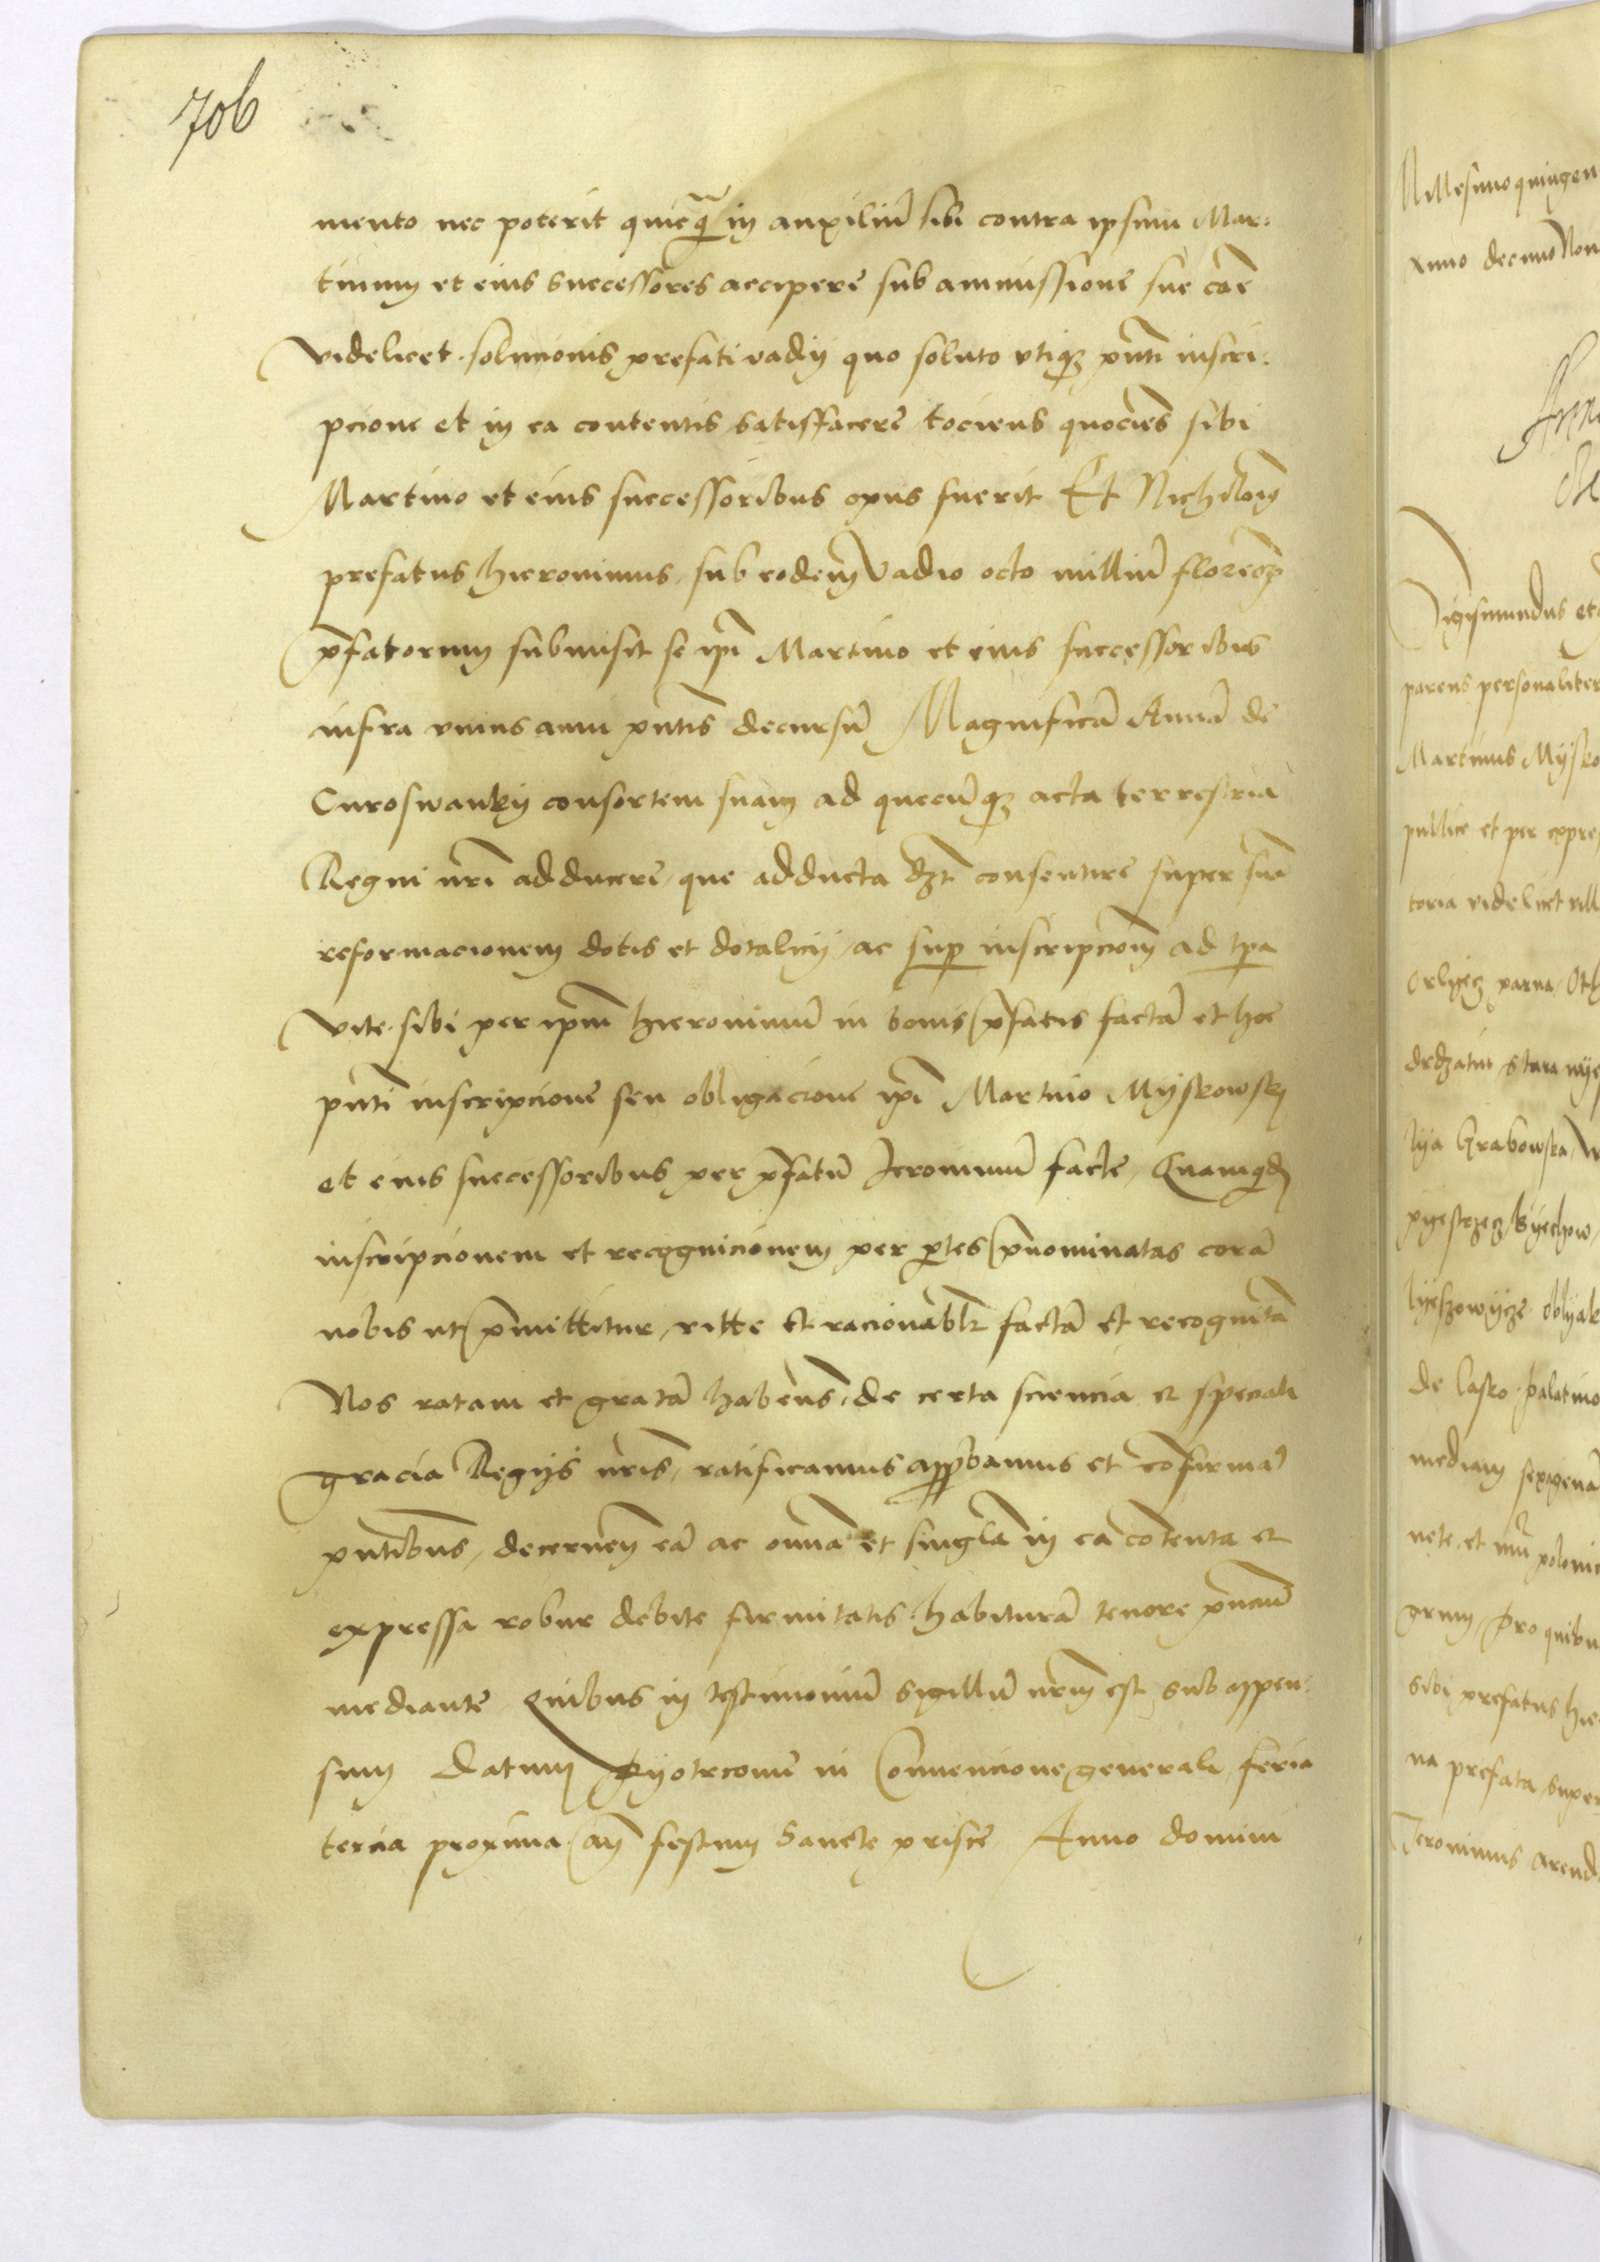 706
mento nec poterit quicq̃ in auxiliũ sibi contra ipsum Mar:
tinum et eius successores accipere sub ammissione sue cãe
videlicet solucionis prefati vadij quo soluto vtiqȝ pñti inscri:
pcione et in ea contentis satisfacere tociens quociẽs sibi
Martino et eius successoribus opus fuerit Et Nichilõin
prefatus hieronimus sub eodem vadio octo milliũ florenoꝝ
p̃fatorum submisit se ip̃i Martino et eius successoribus
infra vnius anni pñtis decursũ Magnificã Annã de
Curoswanky consortem suam ad quecũqȝ acta terrestria
Regni nr̃i adducere, que adducta dȝt consentire super suã
reformacionem dotis et dotalicij, ac sup inscripcioñ ad tp̃a
vite sibi per ip̃m hieronimũ in bonis p̃fatis factã et hoc
pñti inscripcione seu obligacione ip̃i Martino Myskowsky
et eius successoribus per p̃fatũ Jeronimũ facte, Quamqd̃
inscripcionem et recognicionem per ptes p̃nominatas corã
nobis ut p̃mittitur, ritte et racionabl̃r factã et recognitã
Nos ratam et gratã habeñs, de certa sciencia et speciali
gracia Regijs nr̃is, ratificamus app̃bamus et cõfirmaꝰ
pñtibus, decerneñ eã ac om̃a et singl̃a in ea cõtenta et
expressa robur debite firmitatis habiturã tenore pñciũ
mediante Quibus in testimoniũ sigillũ nr̃m est subappen:
sum Datum Pyotrconie in Convencione generali feria
tercia proxima añ festum Sancte prisce Anno domini
Millesimo quingen
Anno decimo Non
Sigismundus et
parens personaliter
Martinus Mysko
publice et per expres
toria videlicet vill
Orlyecz parna, Oth
lya Grabowka, W
de lasko palatino
mediam sexagenã
gruny, pro quibu
sibi prefatus hie
na prefata super
Jeronimus arend